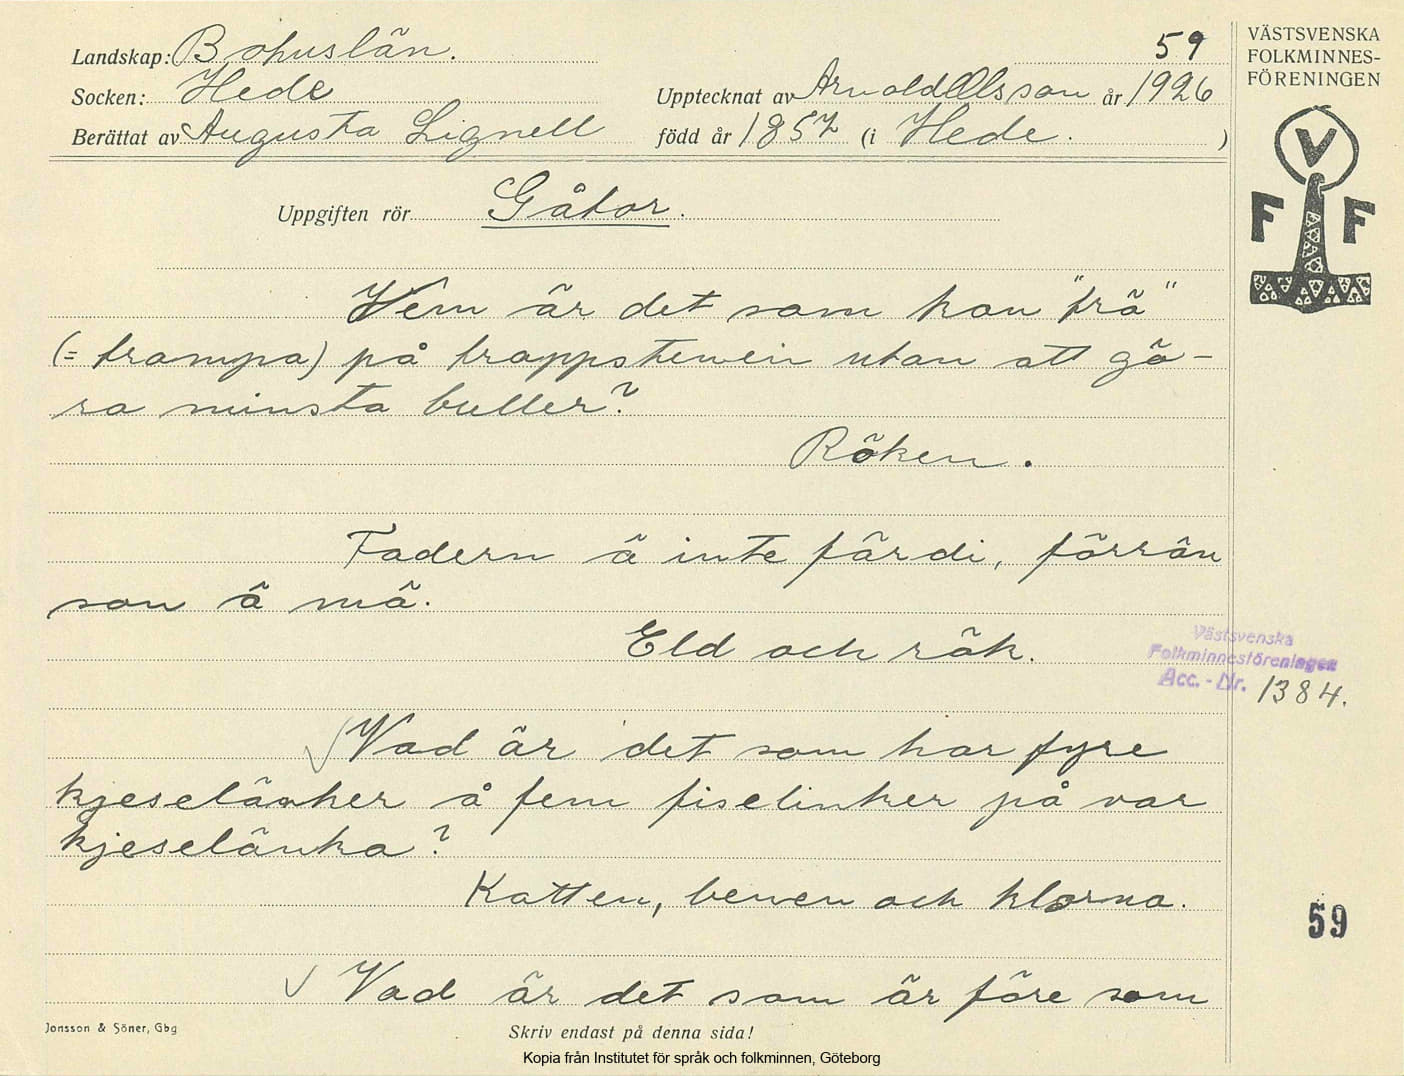 Landskap: Bohuslän.
Socken: Hede
Berättat av Augusta Lignell
59
Upptecknat av Arnold Olsson år 1926
född år 1857 (i Hede. )
VÄSTSVENSKA
FOLKMINNES-
FÖRENINGEN
V
F F
Uppgiften rör Gåtor.
Vem är det som kan "trä"
(= trampa) på trappstenen utan att gö-
ra minsta buller?
Röken.
Fadern ä inte färdi, förrän
son ä mä.
Eld och rök.
Västsvenska
Folkminnesföreningen
Acc. - Nr. 1384.
Vad är det som har fyre
kjeselänker å fem fiselinker på var
kjeselänka?
Katten, benen och klorna.
59
Vad är det som är före som
Jonsson & Söner, Gbg
Skriv endast på denna sida!
Kopia från Institutet för språk och folkminnen, Göteborg